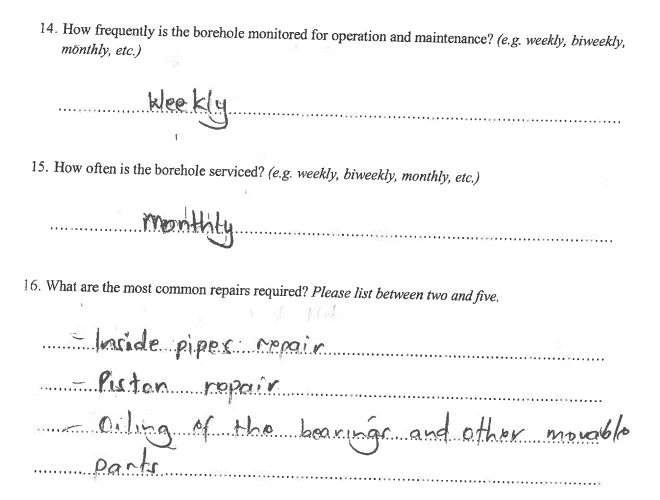 14. How frequently is the borehole monitored for operation and maintenance? (e.g. weekly, biweekly,
monthly, etc.)
Weekly
15. How often is the borehole serviced? (e.g. weekly, biweekly, monthly, etc.)
monthly
16. What are the most common repairs required? Please list between two and five.
- Inside pipes repair
- Piston repair
- Oiling of the bearings and other movable
parts